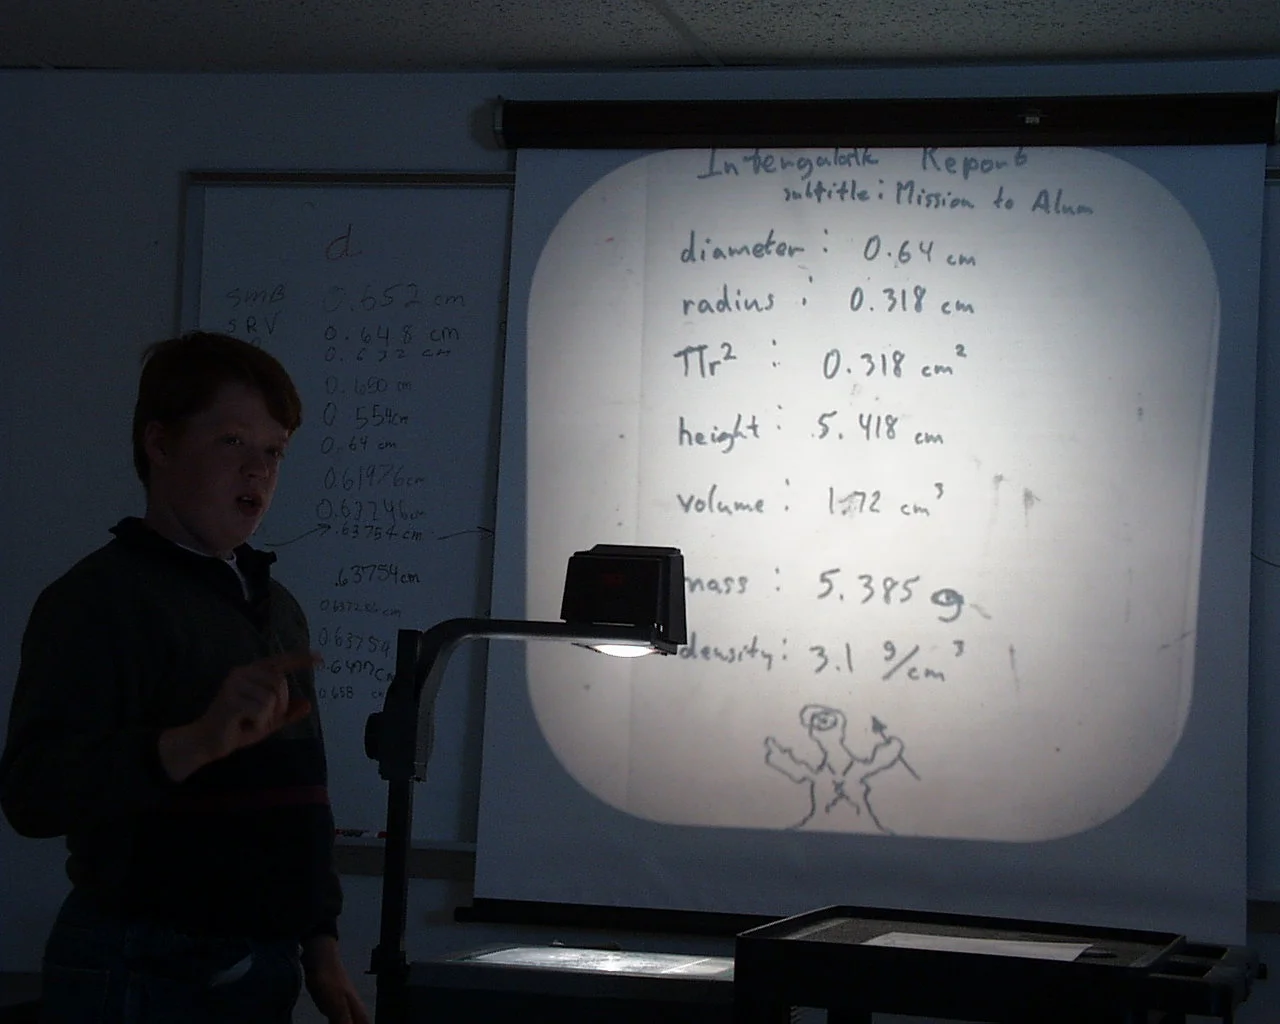 d
SMB 0.652 cm
SRV 0.648 cm
0.632 cm
0.650 cm
0.554cm
0.64 cm
0.61976cm
0.63746cm
.63754 cm
.63754cm
0.63754
0.658 cm
Intergalatik Report
subtitle: Mission to Alum
diameter: 0.64 cm
radius: 0.318 cm
πr²: 0.318 cm²
height: 5.418 cm
volume: 1.72 cm³
mass: 5.385 g
density: 3.1 g/cm³